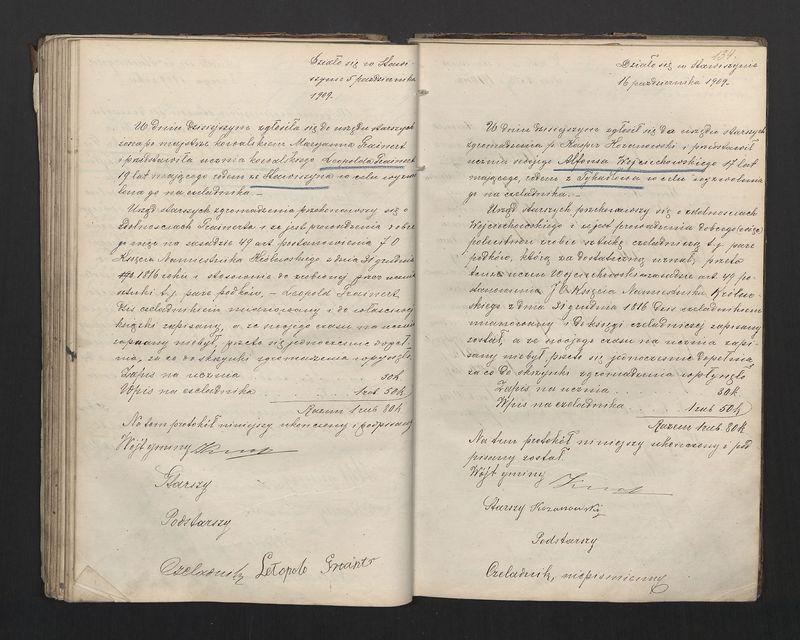 Działo się w Stawi-
szynie 5 października
1909.
W dniu dzisiejszym zgłosiła się do urzędu starszych
majstra kowalskiem Maryanna Grainert
i przedstawiła ucznia kowalskiego Leopolda Grainert
19 lat mającego, rodem ze Stawiszyna w celu wyzwo-
lenia go na czeladnika. –
Urząd starszych zgromadzenia przekonawszy się o
zdolnościach Grainerta i że jest prowadzenia dobre-
go więc na zasadzie 49 art. postanowienia J. O.
Księcia Namiestnika Królewskiego z dnia 31 grudnia
1816 roku i stosownie do zrobionej przez ucznia
sztuki t. j. parę podków, – Leopold Grainert
dziś czeladnikiem mianowany i do właściwej
książki zapisany, a że swojego czasu na ucznia
zapisany niebył, przeto się jednocześnie dopeł-
nia, za co do skrzynki zgromadzenia wpłynęło.
Zapis na ucznia 30k.
Wpis na czeladnika . . . . . . 1rub 50k
Razem 1rub 80k
Na tem protokół niniejszy ukończony i podpisany
Wójt gminy
Starszy
Podstarszy
Czeladnik Letopolo Greinert
134.
Działo się w Stawiszynie
16 października 1909.
W dniu dzisiejszym zgłosił się do urzędu starszych
zgromadzenia p. Kacper Kozanowski i przedstawił
ucznia swojego Alfonsa Wojciechowskiego 17 lat
mającego, rodem z w celu wyzwolenia
go na czeladnika. –
Urząd Starszych przekonawszy się o zdolnościach
Wojciechowskiego i że jest prowadzenia dobrego
polecił zrobić sztukę czeladniczą t. j. parę
podków, którą za dostateczną uznał, przeto
tenże uczeń Wojciechowski na zasadzie art. 49 po-
stanowienia J. O. Księcia Namiestnika Królew-
skiego z dnia 31 grudnia 1816 dziś czeladnikiem
mianowany i do księgi czeladniczej zapisany
został, a że swojego czasu na ucznia zapi-
sany niebył przeto się jednocześnie dopełnia,
za co do skrzynki zgromadzenia wpłynęło
Zapis na ucznia . . . . 30k.
Wpis na czeladnika . . . . 1rub 50k
Razem 1rub 80k.
Na tem protokół niniejszy ukończony i pod-
pisany został.
Wójt gminy
Starszy Kozanowski
Podstarszy
Czeladnik, niepiśmienny